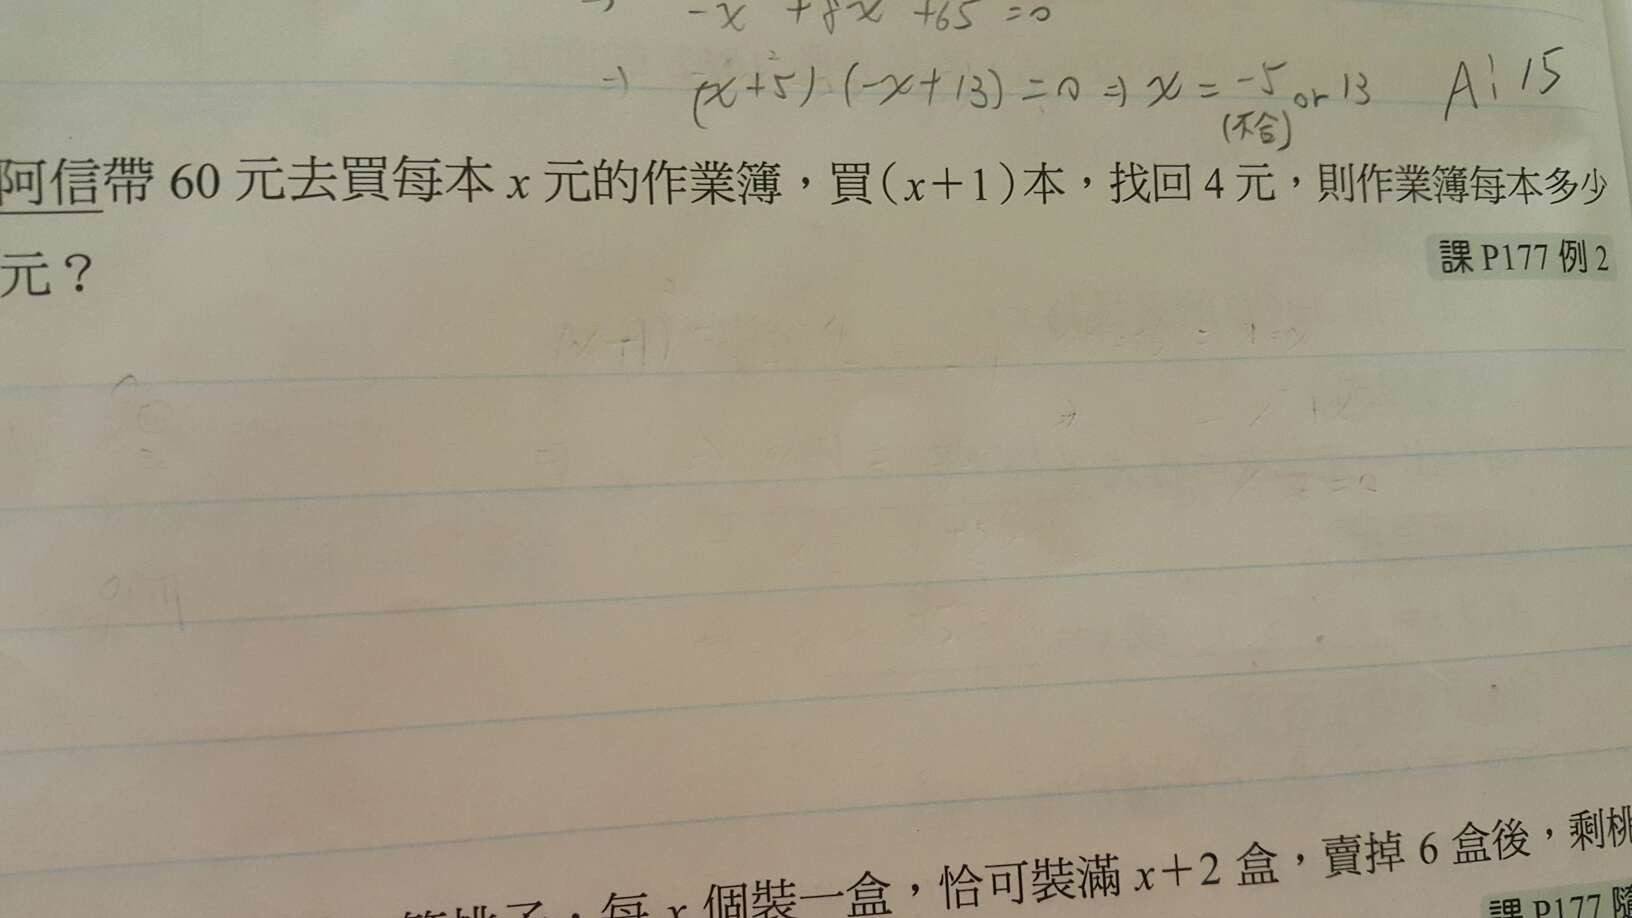 -x² + 8x + 65 = 0
⇒ (x+5)(-x+13) = 0 ⇒ x = -5 or 13 A: 15
(不合)
阿信帶 60 元去買每本 x 元的作業簿，買(x+1)本，找回 4 元，則作業簿每本多少
元？
課 P177 例 2
桃子，每 x 個裝一盒，恰可裝滿 x+2 盒，賣掉 6 盒後，剩桃
課 P177 隨